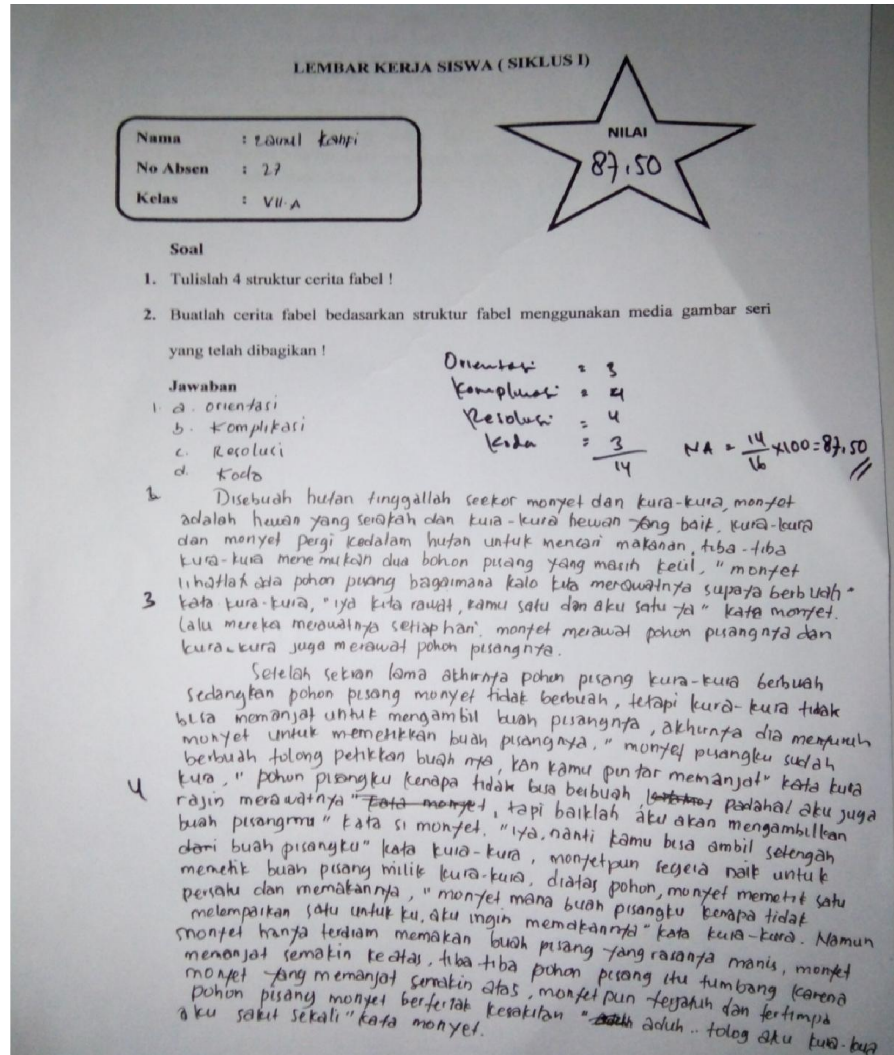 LEMBAR KERJA SISWA ( SIKLUS I)
NILAI
87,50
Nama :
No Absen : 27
Kelas : VII-A
Soal
1. Tulislah 4 struktur cerita fabel !
2. Buatlah cerita fabel bedasarkan struktur fabel menggunakan media gambar seri
yang telah dibagikan !
Orientasi = 3
Komplikasi = 4
Resolusi = 4
Koda = 3
14
NA = 14/16 x100 = 87,50
Jawaban
1. a. orientasi
b. Komplikasi
c. Resolusi
d. Koda
2 Disebuah hutan tinggallah seekor monyet dan kura-kura, monyet
adalah hewan yang serakah dan kura-kura hewan yang baik. kura-kura
dan monyet pergi kedalam hutan untuk mencari makanan, tiba-tiba
kura-kura menemukan dua bohon pisang yang masih kecil, "monyet
lihatlah ada pohon pisang bagaimana kalo kita merawatnya supaya berbuah"
3 kata kura-kura, "iya kita rawat, kamu satu dan aku satu ya" kata monyet.
Lalu mereka merawatnya setiap hari. monyet merawat pohon pisangnya dan
kura-kura juga merawat pohon pisangnya.
Setelah sekian lama akhirnya pohon pisang kura-kura berbuah
sedangkan pohon pisang monyet tidak berbuah, tetapi kura-kura tidak
bisa memanjat untuk mengambil buah pisangnya, akhirnya dia menyuruh
monyet untuk memetikkan buah pisangnya, "monyet pisangku sudah
berbuah tolong petikkan buah nya, kan kamu pintar memanjat" kata kura
kura, "pohon pisangku kenapa tidak bisa berbuah padahal aku juga
4 rajin merawatnya" kata monyet, tapi baiklah aku akan mengambilkan
buah pisangmu" kata si monyet. "iya, nanti kamu bisa ambil setengah
dari buah pisangku" kata kura-kura, monyetpun segera naik untuk
memetik buah pisang milik kura-kura, diatas pohon, monyet memetik satu
persatu dan memakannya, "monyet mana buah pisangku kenapa tidak
melemparkan satu untuk ku, aku ingin memakannya" kata kura-kura. Namun
monyet hanya terdiam memakan buah pisang yang rasanya manis, monyet
memanjat semakin keatas, tiba tiba pohon pisang itu tumbang karena
monyet yang memanjat semakin atas, monyet pun terjatuh dan tertimpa
pohon pisang monyet berteriak kesakitan " aduh.. tolog aku kura-kura
aku sakit sekali" kata monyet.